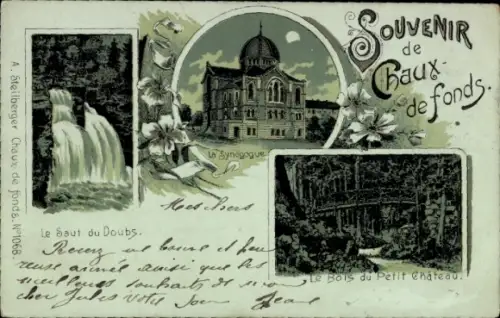 Souvenir
de
Chaux-
de fonds.
A. Steilberger Chaux de fonds. No 1068.
La Synagogue
Le Saut du Doubs.
Le Bois du Petit Château.
Mes chers
Recevez une bonne et heu
reuse année ainsi que les
meilleurs souhaits de mon
cher Jules votre
Jeanne